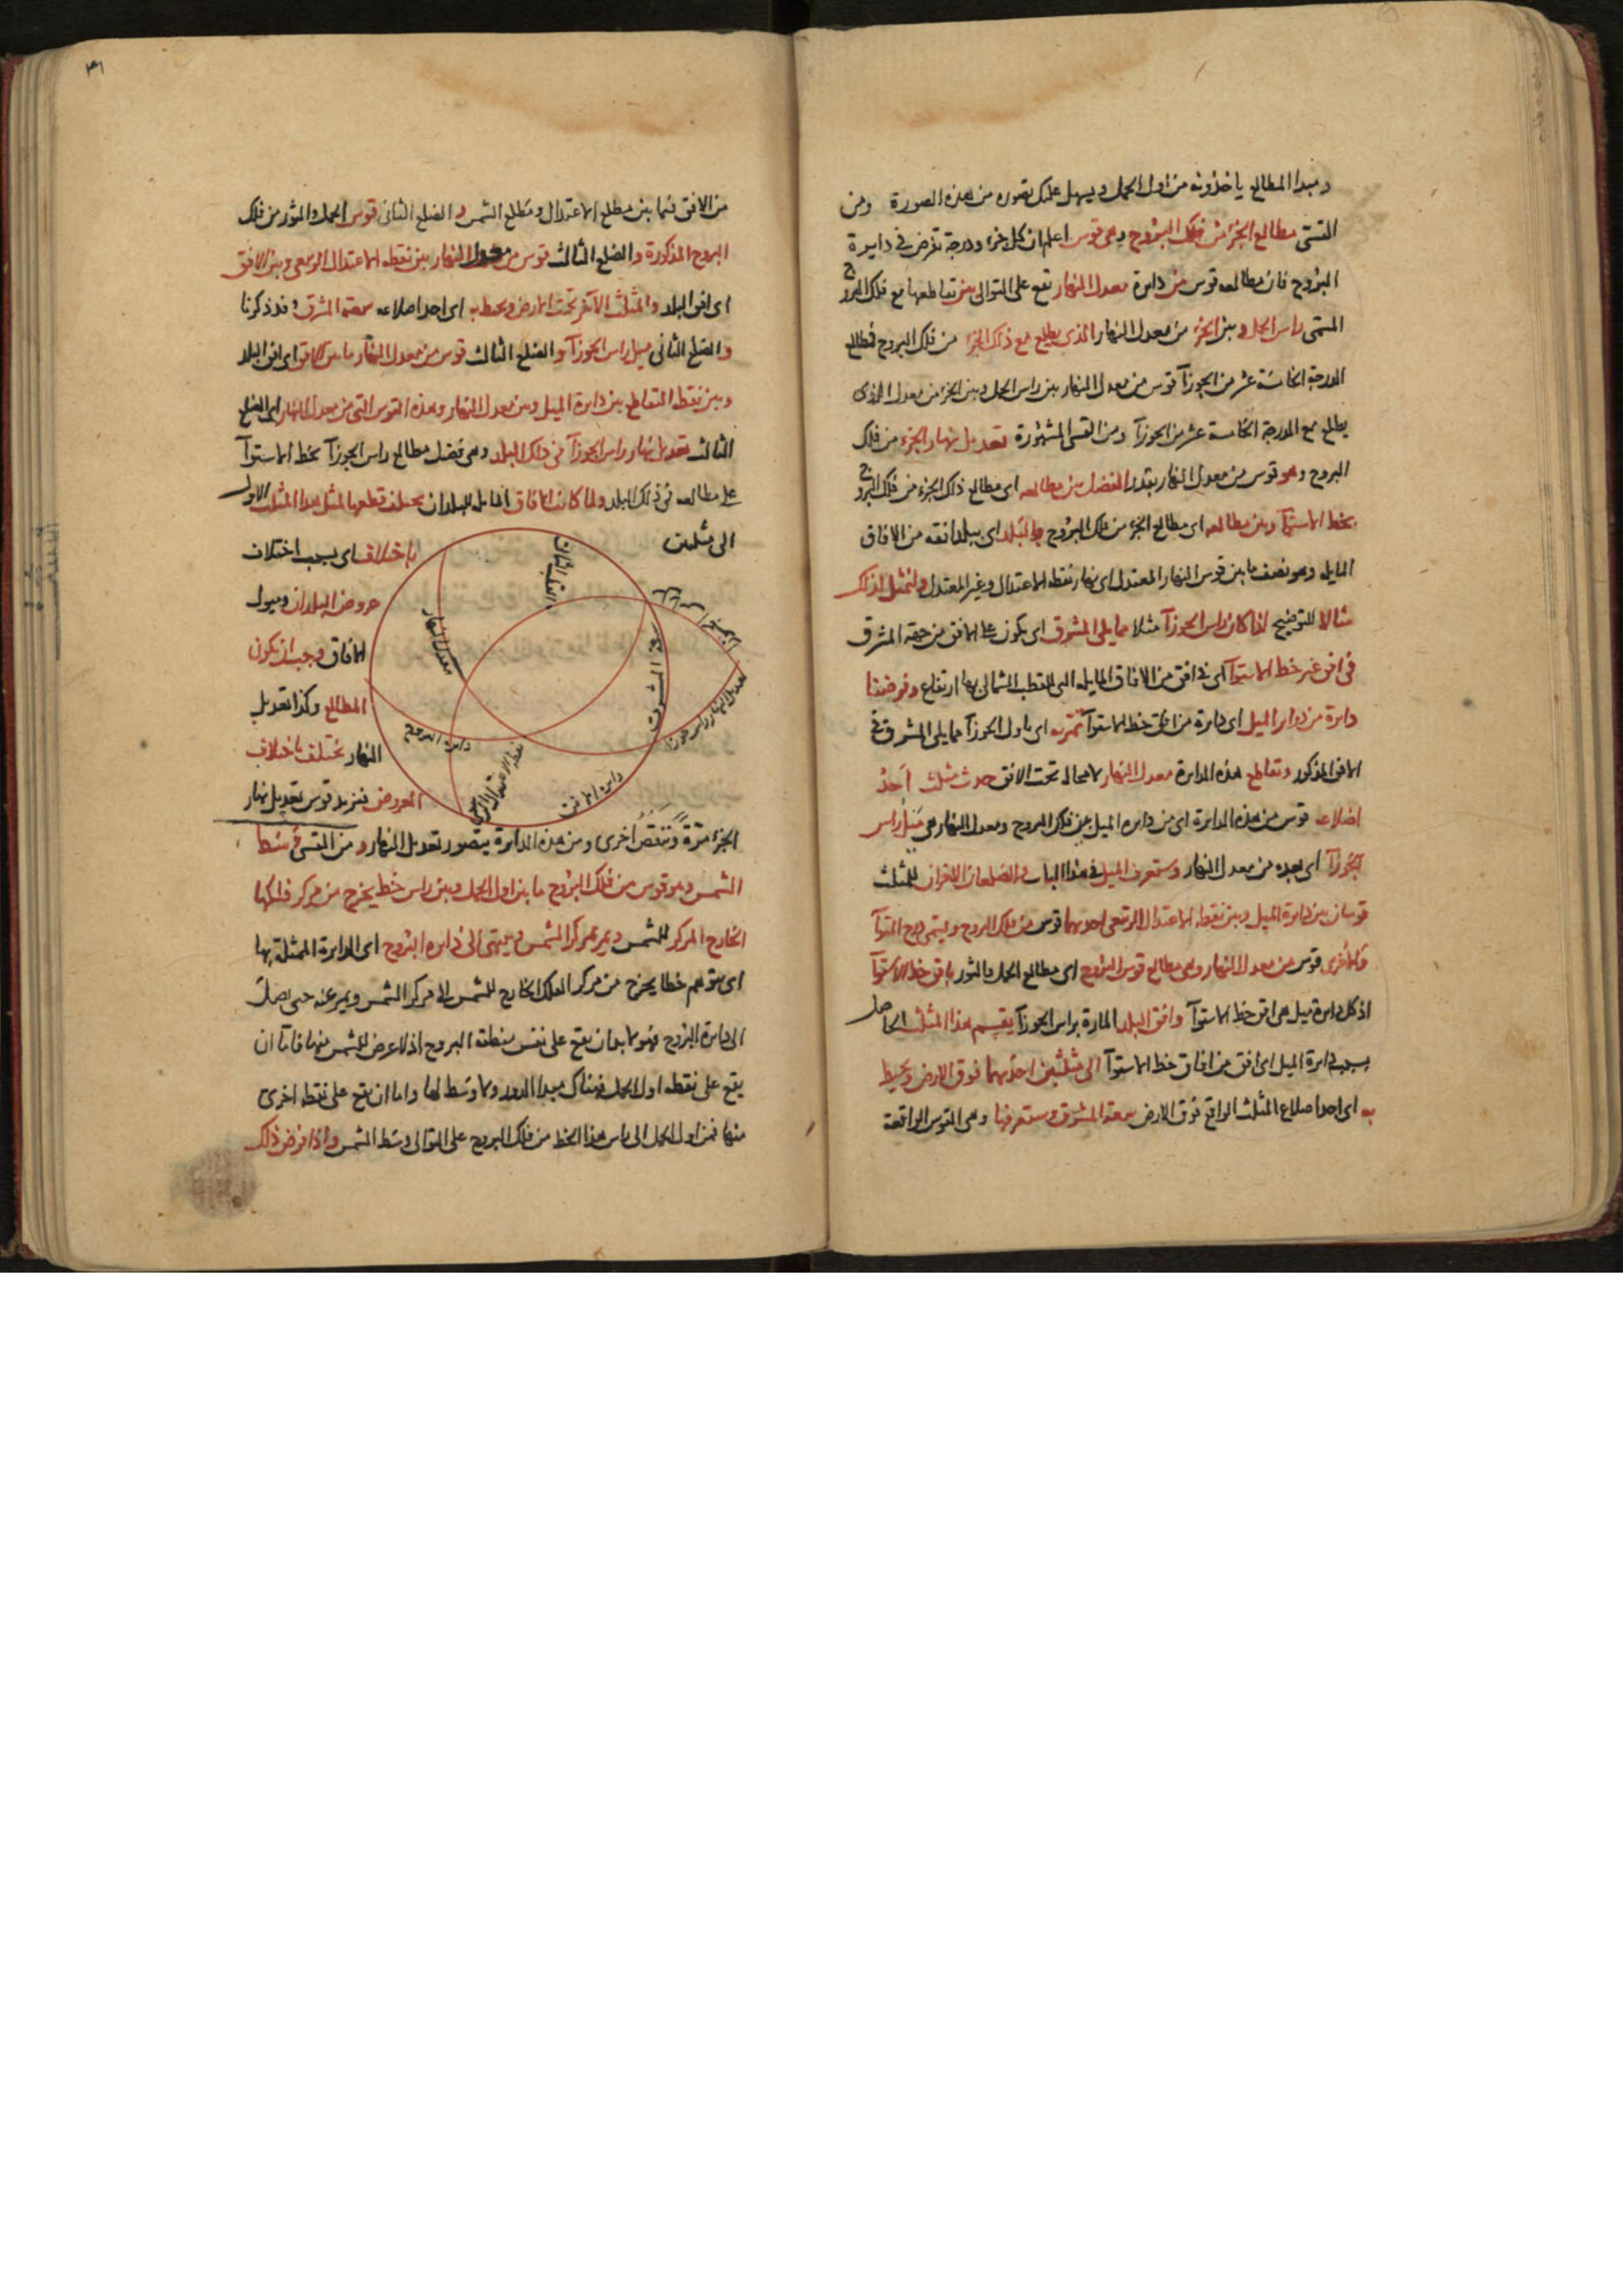 ومبدا المطالع ياخذونه من اول الحمل ويسهل عليك تصوره من هذه الصورة ومن
القسى مطالع الجزء من فلك البروج وهى قوس اعلم ان كل جزء ودرجة تفرض فى دايرة
البروج فان مطالعه قوس من دايرة معدل النهار تقع على التوالى بين تقاطعها مع فلك البروج
المسمى راس الحمل وبين الجزء من معدل النهار الذى يطلع مع ذلك الجزء من فلك البروج فمطالع
الدرجة الخامسة عشر من الجوزآ قوس من معدل النهار بين راس الحمل وبين الجزء من معدل الذى
يطلع مع الدرجة الخامسة عشر من الجوزآ ومن القسى المشهورة تعديل نهار الجزء من فلك
البروج وهو قوس من معدل النهار بقدر الفضل بين مطالعه اى مطالع ذلك الجزء من فلك البروج
بخط الاستوآ وبين مطالعه اى مطالع الجزء من فلك البروج بالبلد اى ببلد افقه من الافاق
المايله وهو نصف ما بين قوس النهار المعتدل اى نهار نقطه الاعتدال وغير المعتدل ولنمثل لذلك
مثالا للتوضيح اذا كان راس الجوزآ مثلا مما يلى المشرق اى يكون على الافق من جهة المشرق
فى افق غير خط الاستوآ اى فى افق من الافاق المايله التى للقطب الشمالى بها ارتفاع وفرضنا
دايرة من دواير الميل اى دايرة من افاق خط الاستوآ تمر به اى باول الجوزآ مما يلى المشرق فى
الافق المذكور وتقاطع هذه الدايرة معدل النهار لا محالة تحت الافق حدث مثلث احد
اضلاعه قوس من هذه الدايرة اى من دايره الميل بين فلك البروج ومعدل النهار هى ميل راس
الجوزآ اى بعده من معدل النهار وستعرف الميل فى هذا الباب والضلعان الاخران للمثلث
قوسان بين دايرة الميل وبين نقطه الاعتدال الربيعى احديهما قوس من فلك البروج ويسمى درج السوآ
والاخرى قوس من معدل النهار وهى مطالع قوس البروج اى مطالع الحمل والثور بافق خط الاستوآ
اذ كل دايرة ميل هى افق خط الاستوآ وافق البلد المارة براس الجوزآ يقسم هذا المثلث الحاصل
بسبب دايرة الميل اى افق من افاق خط الاستوآ الى مثلثين احدهما فوق الارض ويحيط
به اى احد اضلاع المثلث الواقع فوق الارض سعة المشرق وستعرفها وهى القوس الواقعة
٤١
من الافق فيما بين مطلع الاعتدال ومطلع الشمس والضلع الثانى قوس الحمل والثور من فلك
البروج المذكورة والضلع الثالث قوس من معدل النهار بين نقطه الاعتدال الربيعى وبين الافق
اى افق البلد والمثلث الآخر تحت الارض ويحيط به اى احد اضلاعه سعة المشرق وقد ذكرنا
والضلع الثانى ميل راس الجوزآ والضلع الثالث قوس من معدل النهار ما بين الافق اى افق البلد
وبين نقطة التقاطع بين دايرة الميل وبين معدل النهار وهذه القوس التى من معدل النهار اى الضلع
الثالث تعديل نهار راس الجوزآ فى ذلك البلد وهى فضل مطالع راس الجوزآ بخط الاستوآ
على مطالعه فى ذلك البلد ولما كانت الافاق المايله للبلدان يختلف قطعها لمثل هذا المثلث الاول
الى مثلثين
باختلاف اى بسبب اختلاف
عروض البلدان وميول
الافاق وجب ان تكون
المطالع وكذا تعديل
النهار تختلف باختلاف
العروض فتزيد قوس تعديل نهار
معدل النهار
سعة المشرق
دايرة البروج
نقطة الاعتدال الربيعى
دايرة الافق
الجزء مرة وتنقص اخرى ومن هذه الدايرة يتصور تعديل النهار ومن القسى وسط
الشمس وهو قوس من فلك البروج ما بين اول الحمل وبين راس خط يخرج من مركز فلكها
الخارج المركز للشمس ويمر بمركز الشمس وينتهى الى دايره البروج اى الدايرة الممثلة بها
اى يتوهم خطا يخرج من مركز الفلك الخارج للشمس الى مركز الشمس ويمر عنه حتى يصل
الى دايرة البروج فهو لا بد ان يقع على نفس منطقة البروج اذ لا عرض للشمس عنها فاما ان
يقع على نقطه اول الحمل فهناك مبدا الدور ولا وسط لها واما ان يقع على نقطه اخرى
منها فمن اول الحمل الى راس هذا الخط من فلك البروج على التوالى وسط الشمس واذا فرض ذلك